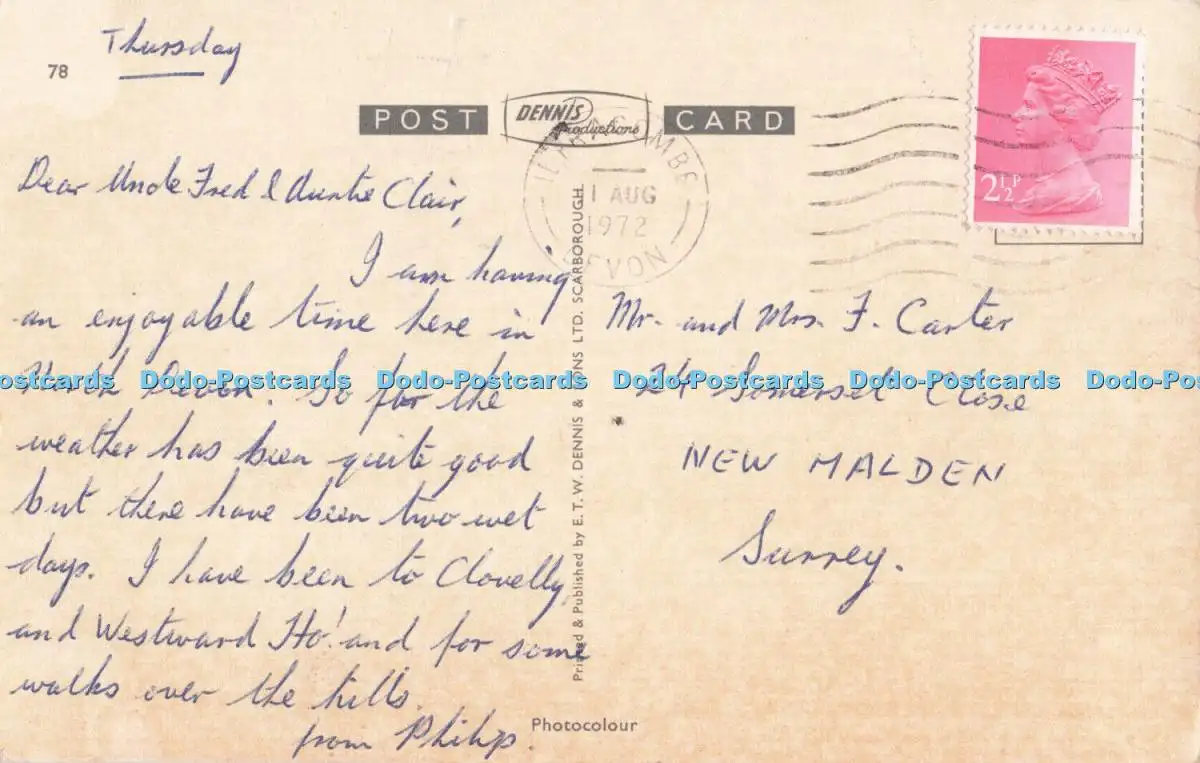 Thursday
78
POST DENNIS Productions CARD
ILFRACOMBE
1 AUG
1972
DEVON
2½P
Dear Uncle Fred & Auntie Clair,
I am having
an enjoyable time here in
North Devon. So far the
weather has been quite good
but there have been two wet
days. I have been to Clovelly
and Westward Ho! and for some
walks over the hills.
from Philip.
Printed & Published by E. T. W. DENNIS & SONS LTD. SCARBOROUGH.
Mr. and Mrs. F. Carter
24 Somerset Close
NEW MALDEN
Surrey.
Photocolour
Dodo-Postcards Dodo-Postcards Dodo-Postcards Dodo-Postcards Dodo-Postcards Dodo-Postcards